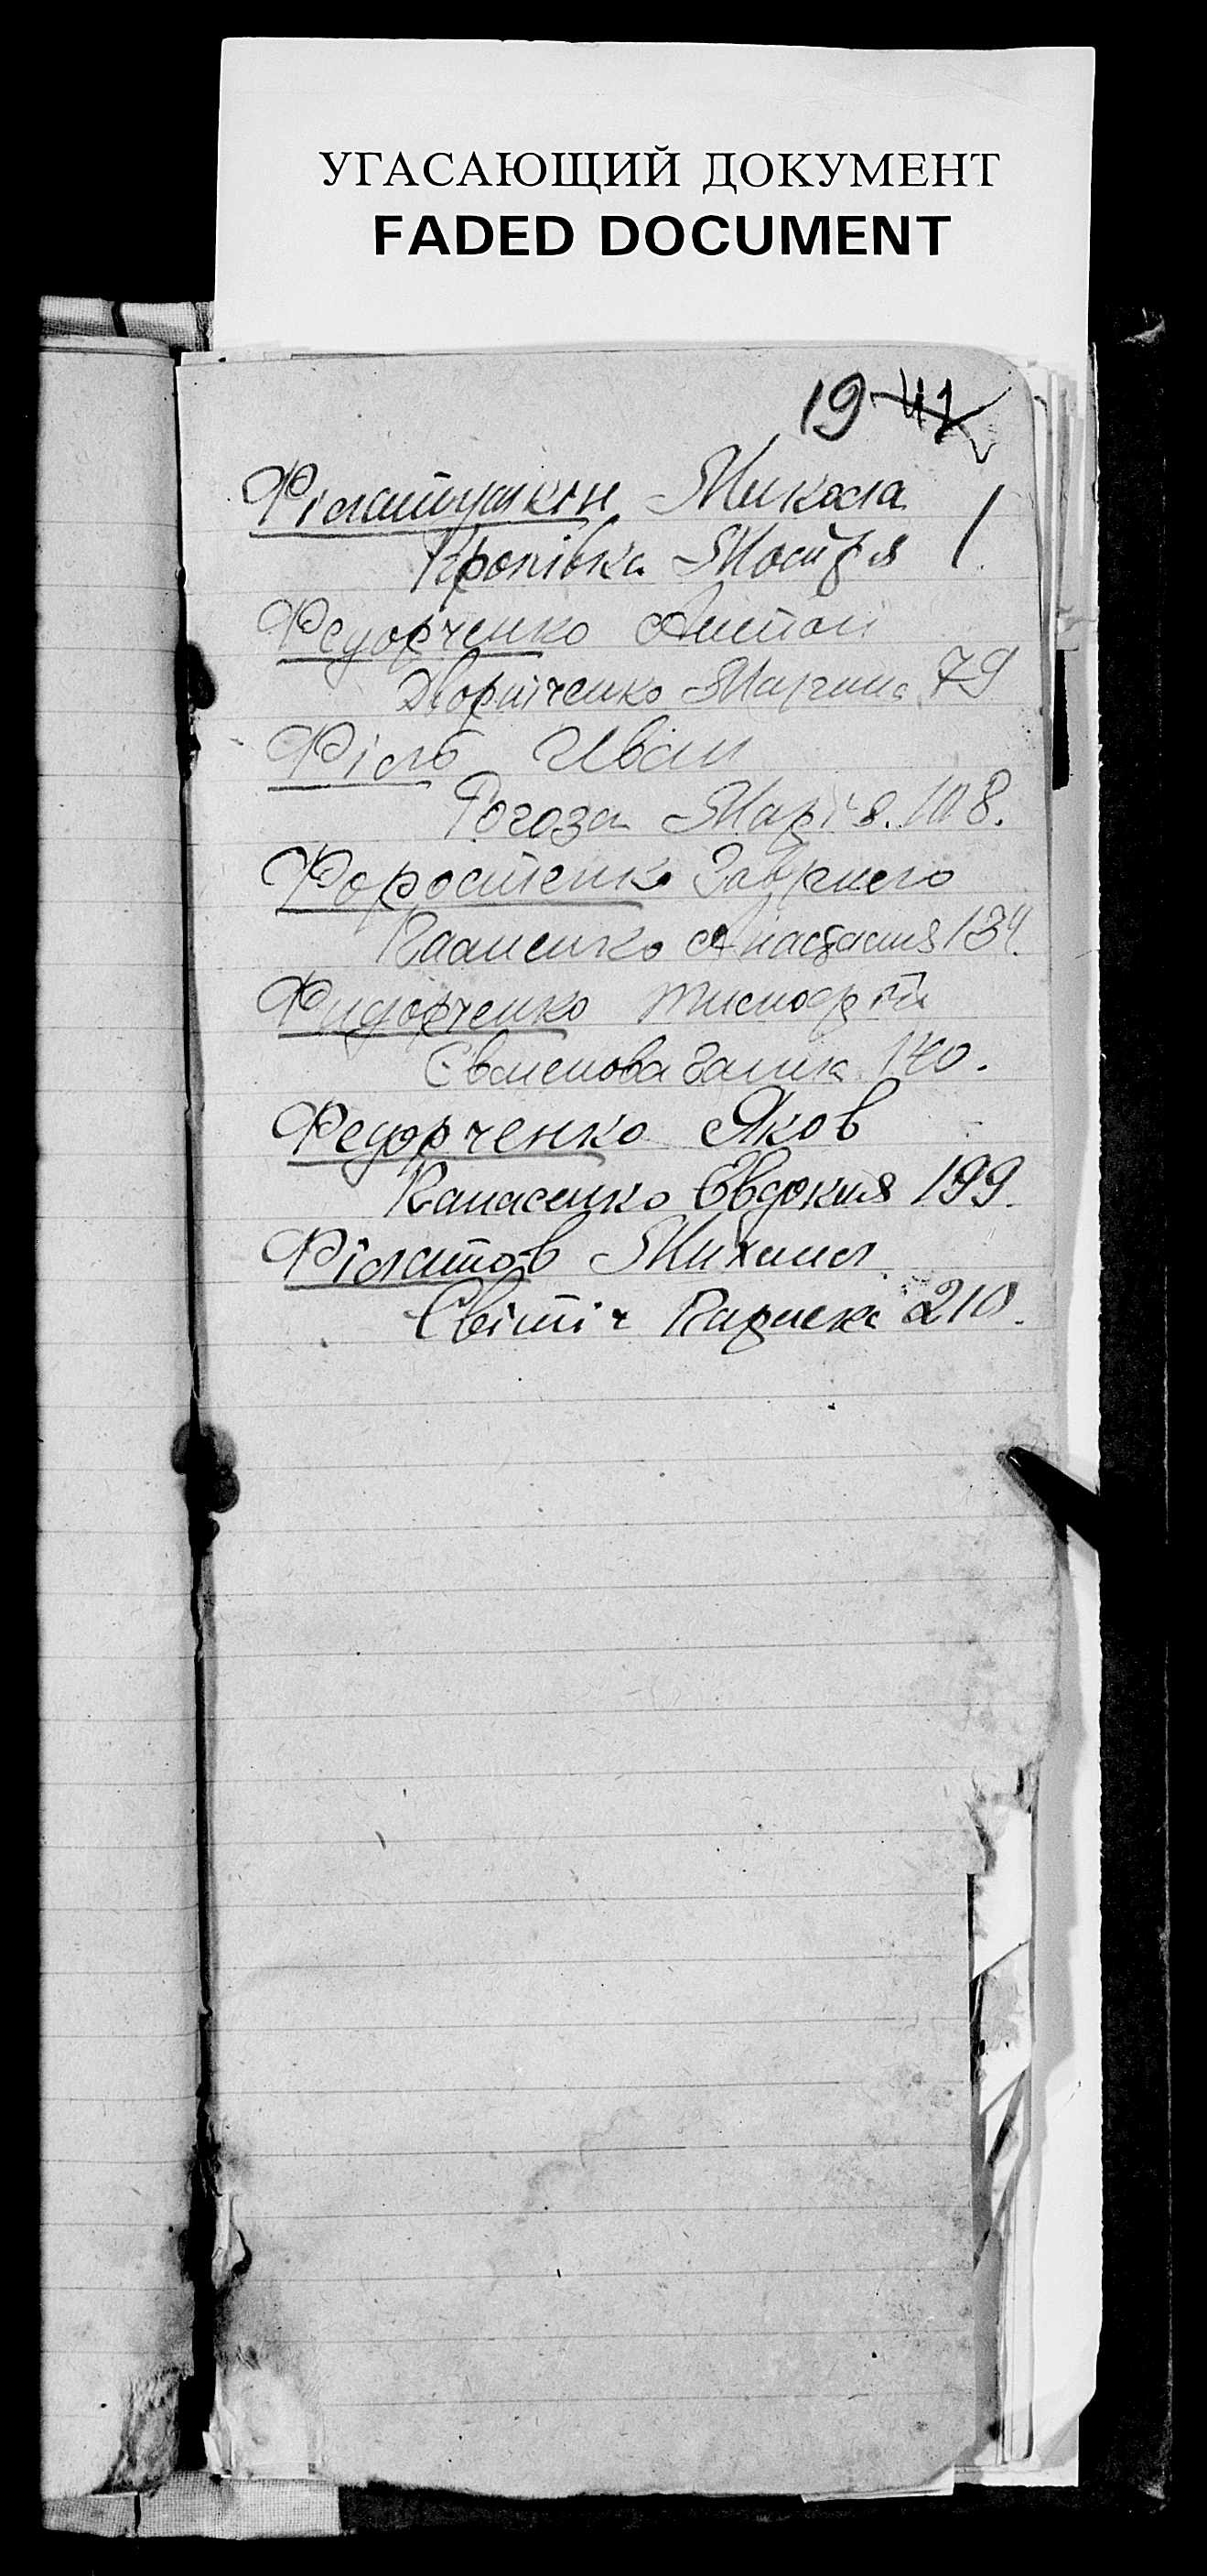 УГАСАЮЩИЙ ДОКУМЕНТ
FADED DOCUMENT
19 41
Філатушкін Микола
Кропівка Мотря 1.
Федорченко Антон
Марина 79
Філь Иван
Рогоза Марія. 108.
Форостенко
Кааменко Анастасия 134.
Фидорченко Тимофій
Евменова Ганка 140.
Федорченко Яков
Капасенко Евдокия 199.
Філатов Михаил
Світіч 210.